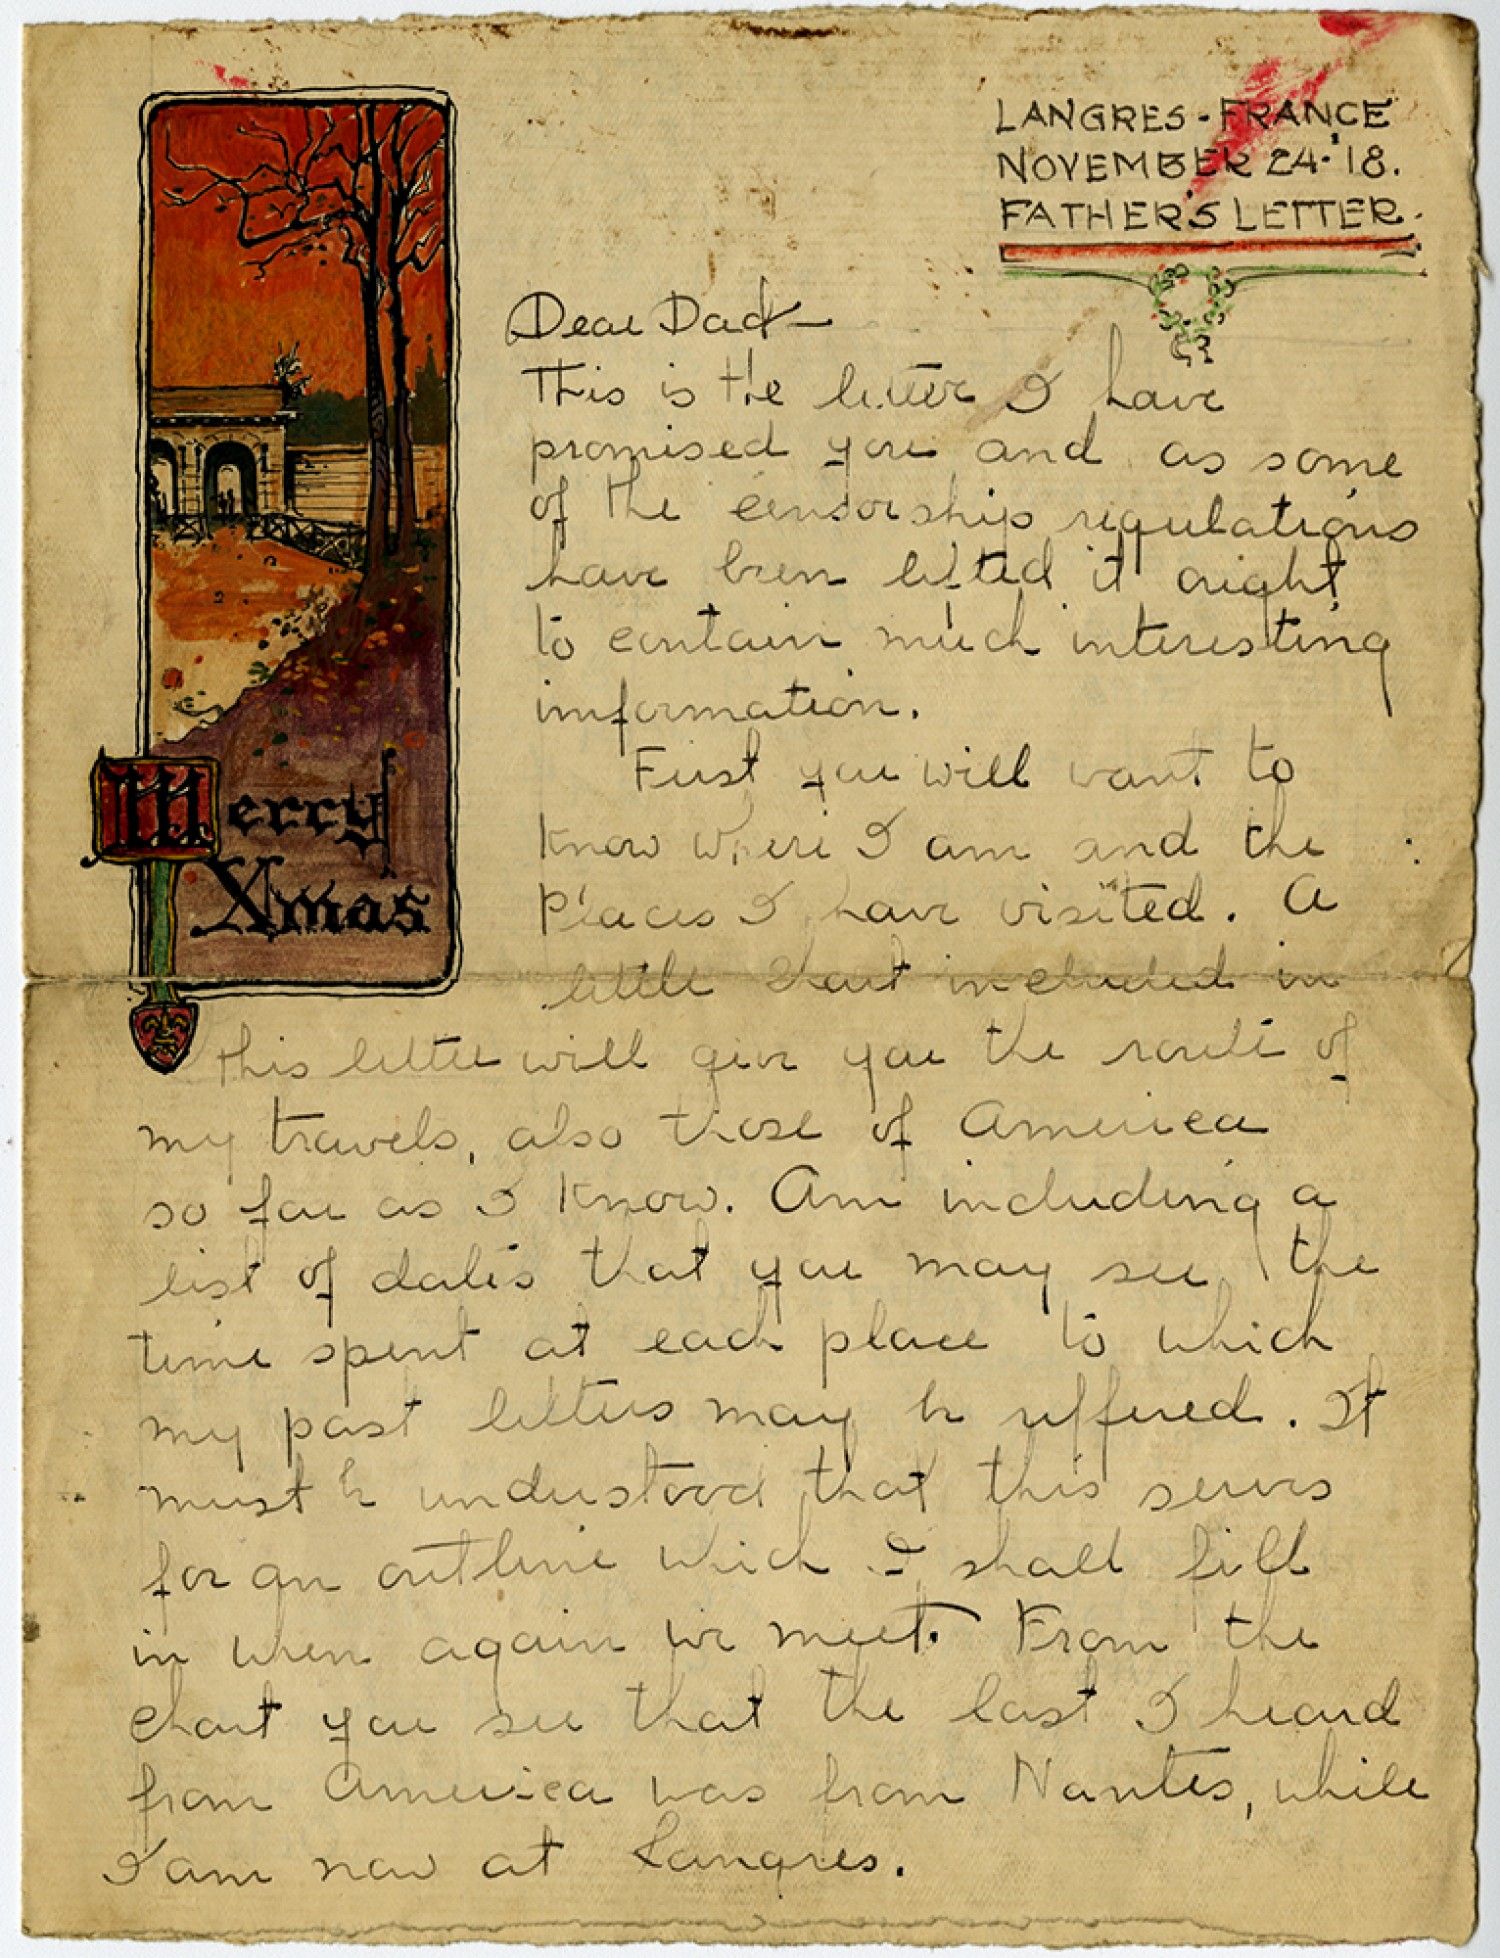 LANGRES - FRANCE
NOVEMBER 24 - '18.
FATHER'S LETTER.
Dear Dad -
This is the letter I have
promised you and as some
of the censorship regulations
have been lifted it ought
to contain much interesting
information.
First you will want to
know where I am and the
places I have visited. A
little chart included in
this letter will give you the route of
my travels, also those of America
so far as I know. Am including a
list of dates that you may see the
time spent at each place to which
my past letters may be reffered. It
must be understood that this serves
for an outline which I shall fill
in when again we meet. From the
chart you see that the last I heard
from America was from Nantes, while
I am now at Langres.
Merry
Xmas